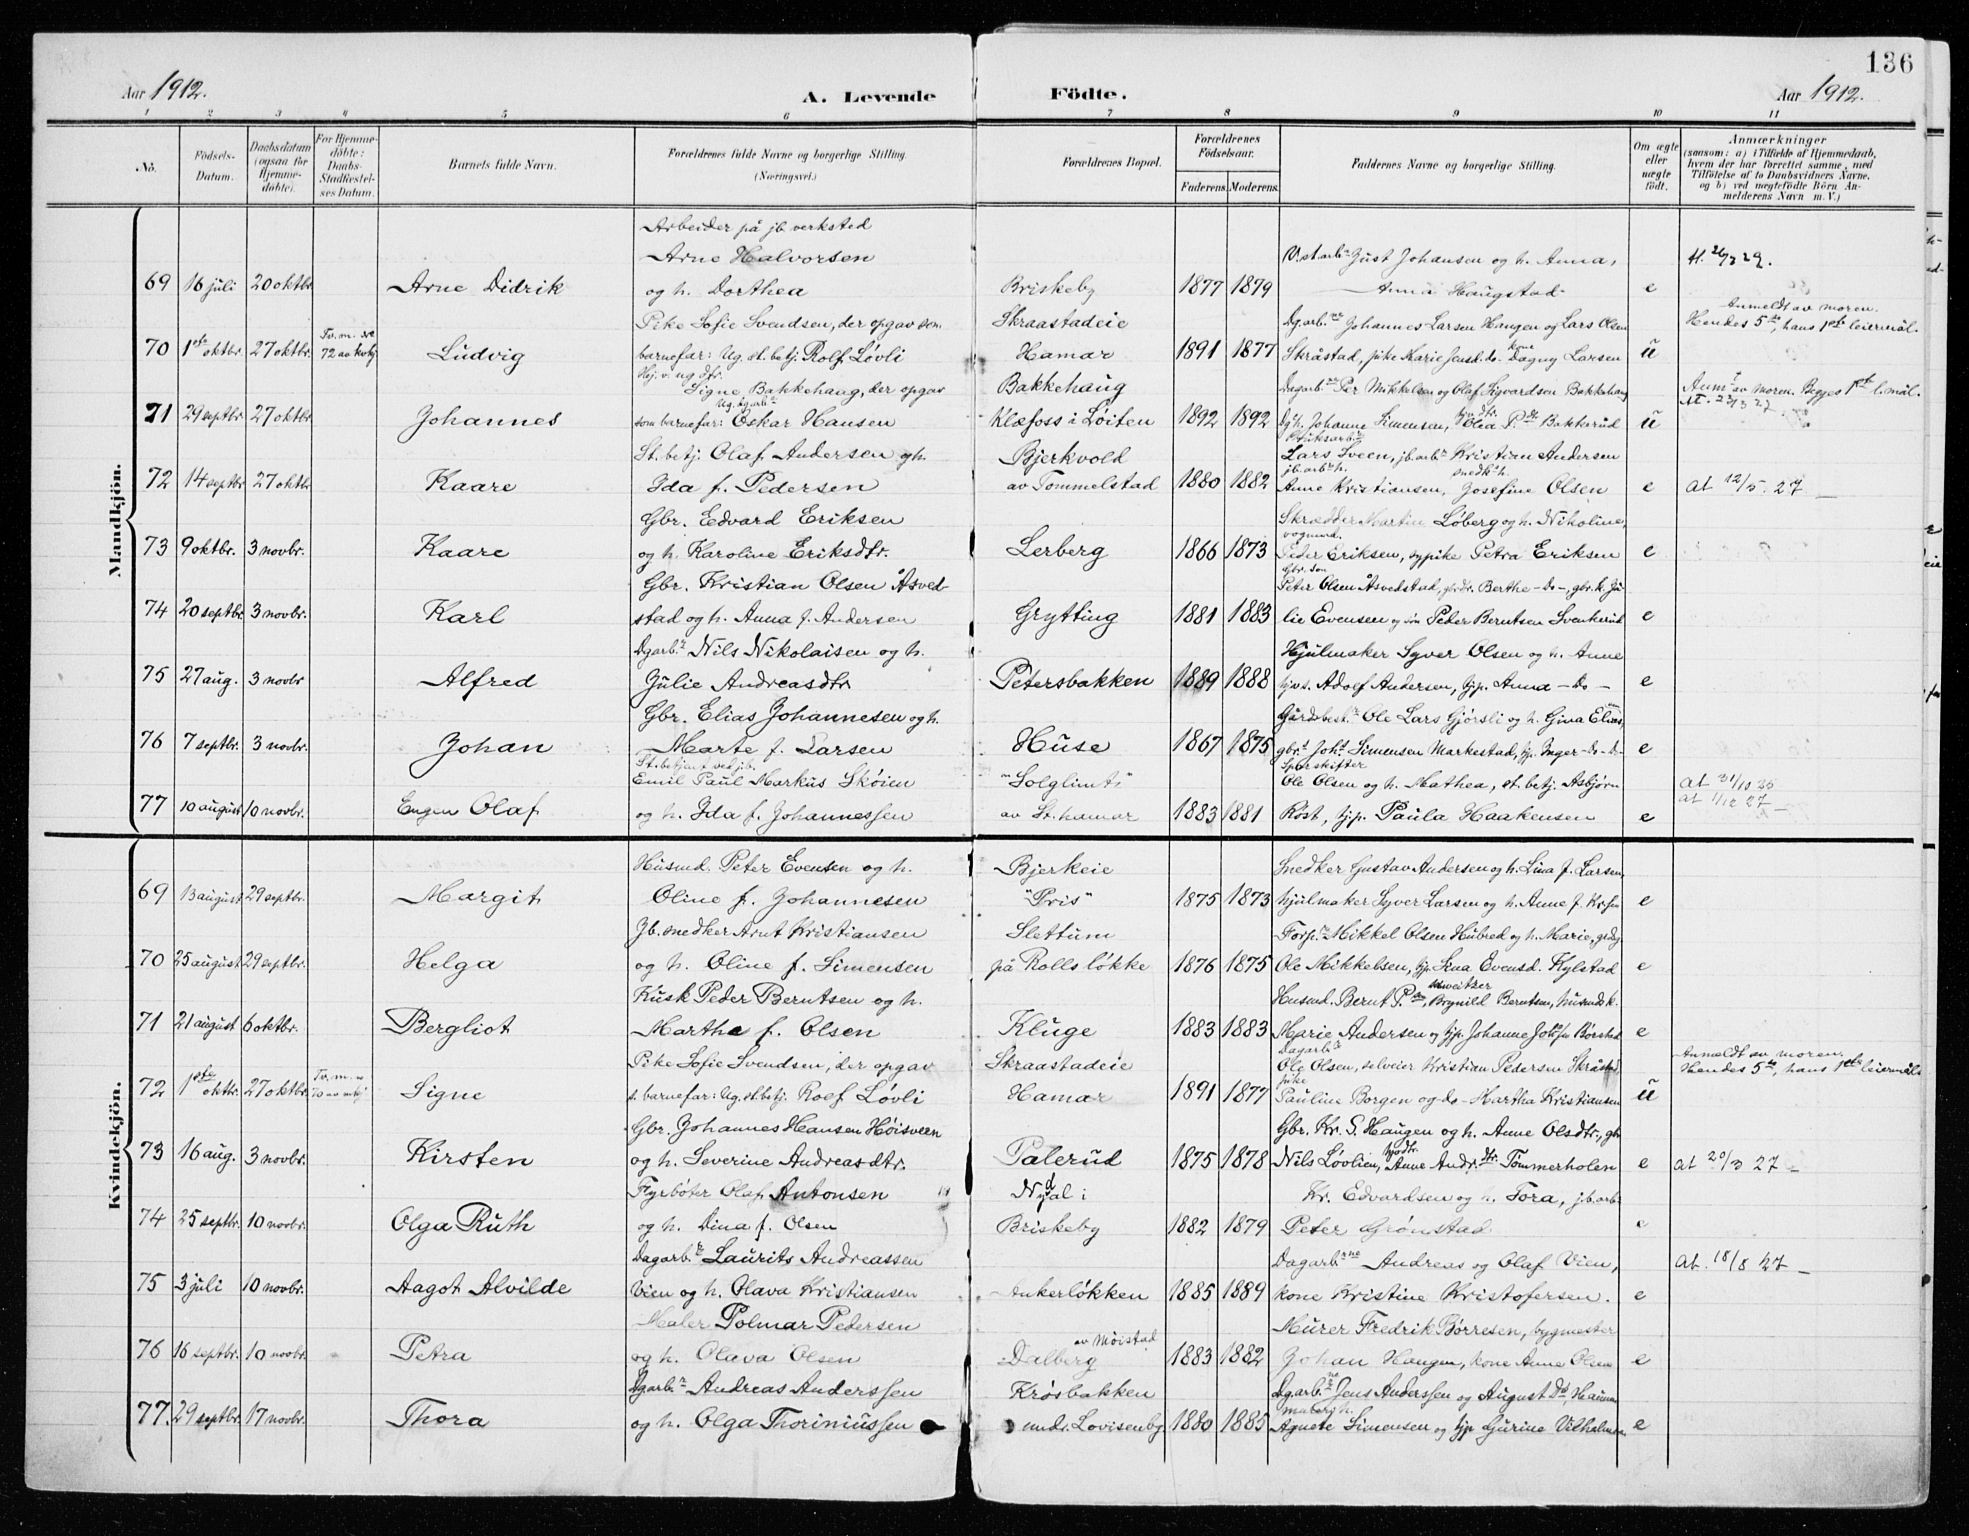 136
Aar 1912.
A. Levende Födte.
Aar 1912.
1 2 3 4 5 6 7 8 9 10 11
No.
Födsels-Datum.
Daabsdatum (ogsaa for Hjemme-döbte).
For Hjemme-döbte: Daabs-Stadfæstel-ses Datum.
Barnets fulde Navn.
Forældrenes fulde Navne og borgerlige Stilling. (Næringsvei.)
Forældrenes Bopæl.
Forældrenes Födselsaar.
Faderens. Moderens.
Faddernes Navne og borgerlige Stilling.
Om ægte eller uægte födt.
Anmærkninger
(saasom: a) i Tilfælde af Hjemmedaab,
hvem der har forrettet samme, med
Tilföielse af to Daabsvidners Navne,
og b) ved uægtefödte Börn An-
melderens Navn m. V.)
Mandkjön.
Arbeider på jb. verksted
Arne Halvorsen V. st. arb. Just Johansen og h. Anna, A. 26/3 29.
69 16 juli 20 oktbr. Arne Didrik og h. Dorthea Briskeby 1877 1879 Anna Haugstad e
Pike Sofie Svendsen, der opgav som Skraastadeie Dgarb.ne Johannes Larsen Haugen og Lars Olsen Anmeldt av moren. Hendes 5te, hans 1ste leiermål.
70 1ste oktbr. 27 oktbr. Tv. m. 72 av kvkj Ludvig barnefar: Ug. st. betj. Rolf Løvli Hamar 1891 1877 Skråstad, pike Marie Jensd. do- kone Dagny Larsen u
Hej. v. ug dtr. Signe Bakkehaug, der opgav Bakkehaug Dagarb.ne Per Mikkelsen og Olaf Sigvardsen Bakkehaug Anm.t av moren. Begges 1ste l.mål.
71 29 septbr. 27 oktbr. Johannes som barnefar: Ug. dgarb.r Oskar Hansen Klæfoss i Løiten 1892 1892 Johanne Simensen, Olia P. Bakkerud u At. 22/3 27.
St. betj. Olaf Andersen og h. Bjerkvold Lars Sveen, jb. arb.r Kristian Andersen
72 14 septbr 27 oktbr Kaare Ida f. Pedersen av Tommelstad 1880 1882 jb. arb. h. Anne Kristiansen, snedk. h. Josefine Olsen e At 12/5. 27 —
Gbr. Edvard Eriksen Skrædder Martin Løberg og h. Nikoline,
73 9 oktbr. 3 novbr. Kaare og h. Karoline Eriksdtr. Lerberg 1866 1873 vognmd. Peder Eriksen, sypike Petra Eriksen e
Gbr. Kristian Olsen Åsved- Gbr. søn Peter Olsen Åsvedstad, gbrdr. Berthe -do-, gbr. k. Ju-
74 20 septbr 3 novbr. Karl stad og h. Anna f. Andersen Grytting 1881 1883 lie Evensen og søn Peder Berntsen Svenkerud e
Dgarb.r Nils Nikolaisen og h. Hjulmaker Syver Olsen og h. Anne
75 27 aug. 3 novbr Alfred Julie Andreasdtr Petersbakken 1889 1888 hjvs. Adolf Andersen, hjp. Anna -do- e
Gbr. Elias Johannesen og h. Gårdbest. Ole Lars Gjørsli og h. Gina Elias
76 7 septbr. 3 novbr. Johan Marte f. Larsen Huse 1867 1875 gbr. Joh.s Simensen Markestad, hjp. Inger -do-do- e
St. betjent ved jb. Emil Paul Markus Skøien "Solglimt" Sporskifter Ole Olsen og h. Mathea, st. betj. Asbjørn At 31/10 35
77 10 august 10 novbr. Eugen Olaf og h. Ida f. Johannessen av St. hamar 1883 1881 Röst, hjp. Paula Haakensen e at 1/12 27 —
Kvindekjön.
Husmd. Peter Evensen og h. Bjerkeie Snedker Gustav Andersen og h. Lina f. Larsen,
69 13 august 29 septbr. Margit Oline f. Johannesen "Pris" 1875 1873 hjulmaker Syver Larsen og h. Anne f. e
Jb. snedker Arnt Kristiansen Slettum Forp. Mikkel Olsen Hubred og h. Marie,
70 25 august 29 septbr. Helga og h. Oline f. Simensen på Rollsløkke 1876 1875 Ole Mikkelsen, hjp. Lena Evensd. Kylstad e
Kusk Peder Berntsen og h. Husmd. Bernt P., sveitzer Brynild Berntsen, husmdsk.
71 21 august 6 oktbr. Bergliot Marthe f. Olsen Kluge 1883 1883 Marie Andersen og hjp. Johanne Børstad e
Pike Sofie Svendsen, der opgav Skraastadeie Dagarb.r Ole Olsen, selveier Kristian Pedersen Skråstad, Anmeldt av moren. Hendes 5te, hans 1ste leiermål.
72 1ste oktbr. 27 oktbr. Tv. m. 70 av mkj Signe s. barnefar: Ug. st. betj. Rolf Løvli Hamar 1891 1877 pike Pauline Borgen og do- Martha Kristiansen u
Gbr. Johannes Hansen Høisveen Gbr. Kr. S. Haugen og h. Anne Olsdtr.,
73 16 aug. 3 novbr. Kirsten og h. Severine Andreasdtr. Palerud 1875 1878 Nils Løvlien, Anne Andr.dtr. Tømmerholen e At 20/3 27 —
Fyrbøter Olaf Antonsen Nydal i Kr. Edvardsen og h. Tora, jb. arb.
74 25 septbr. 10 novbr. Olga Ruth og h. Dina f. Olsen Briskeby 1882 1879 Peter Grønstad e
Dagarb.r Laurits Andreassen Dagarb.rne Andreas og Olaf Vien, At. 18/8 27 —
75 3 juli 10 novbr. Aagot Alvilde Vien og h. Olava Kristiansen Ankerløkken 1885 1889 kone Kristine Kristofersen. e
Maler Polmar Pedersen av Møistad Murer Fredrik Børresen, bygmester
76 16 septbr. 10 novbr. Petra og h. Olava Olsen Dalberg 1883 1882 Johan Haugen, kone Anne Olsen e
Dgarb.r Andreas Anderssen Krøsbakken Dgarb.ne Jens Anderssen og August Do, Hamar
77. 29 septbr. 17 novbr. Thora og h. Olga Thoriniussen undr. Lovisenbg 1880 1885 Agnete Simensen og hjp Gurine Vilhelmsen e